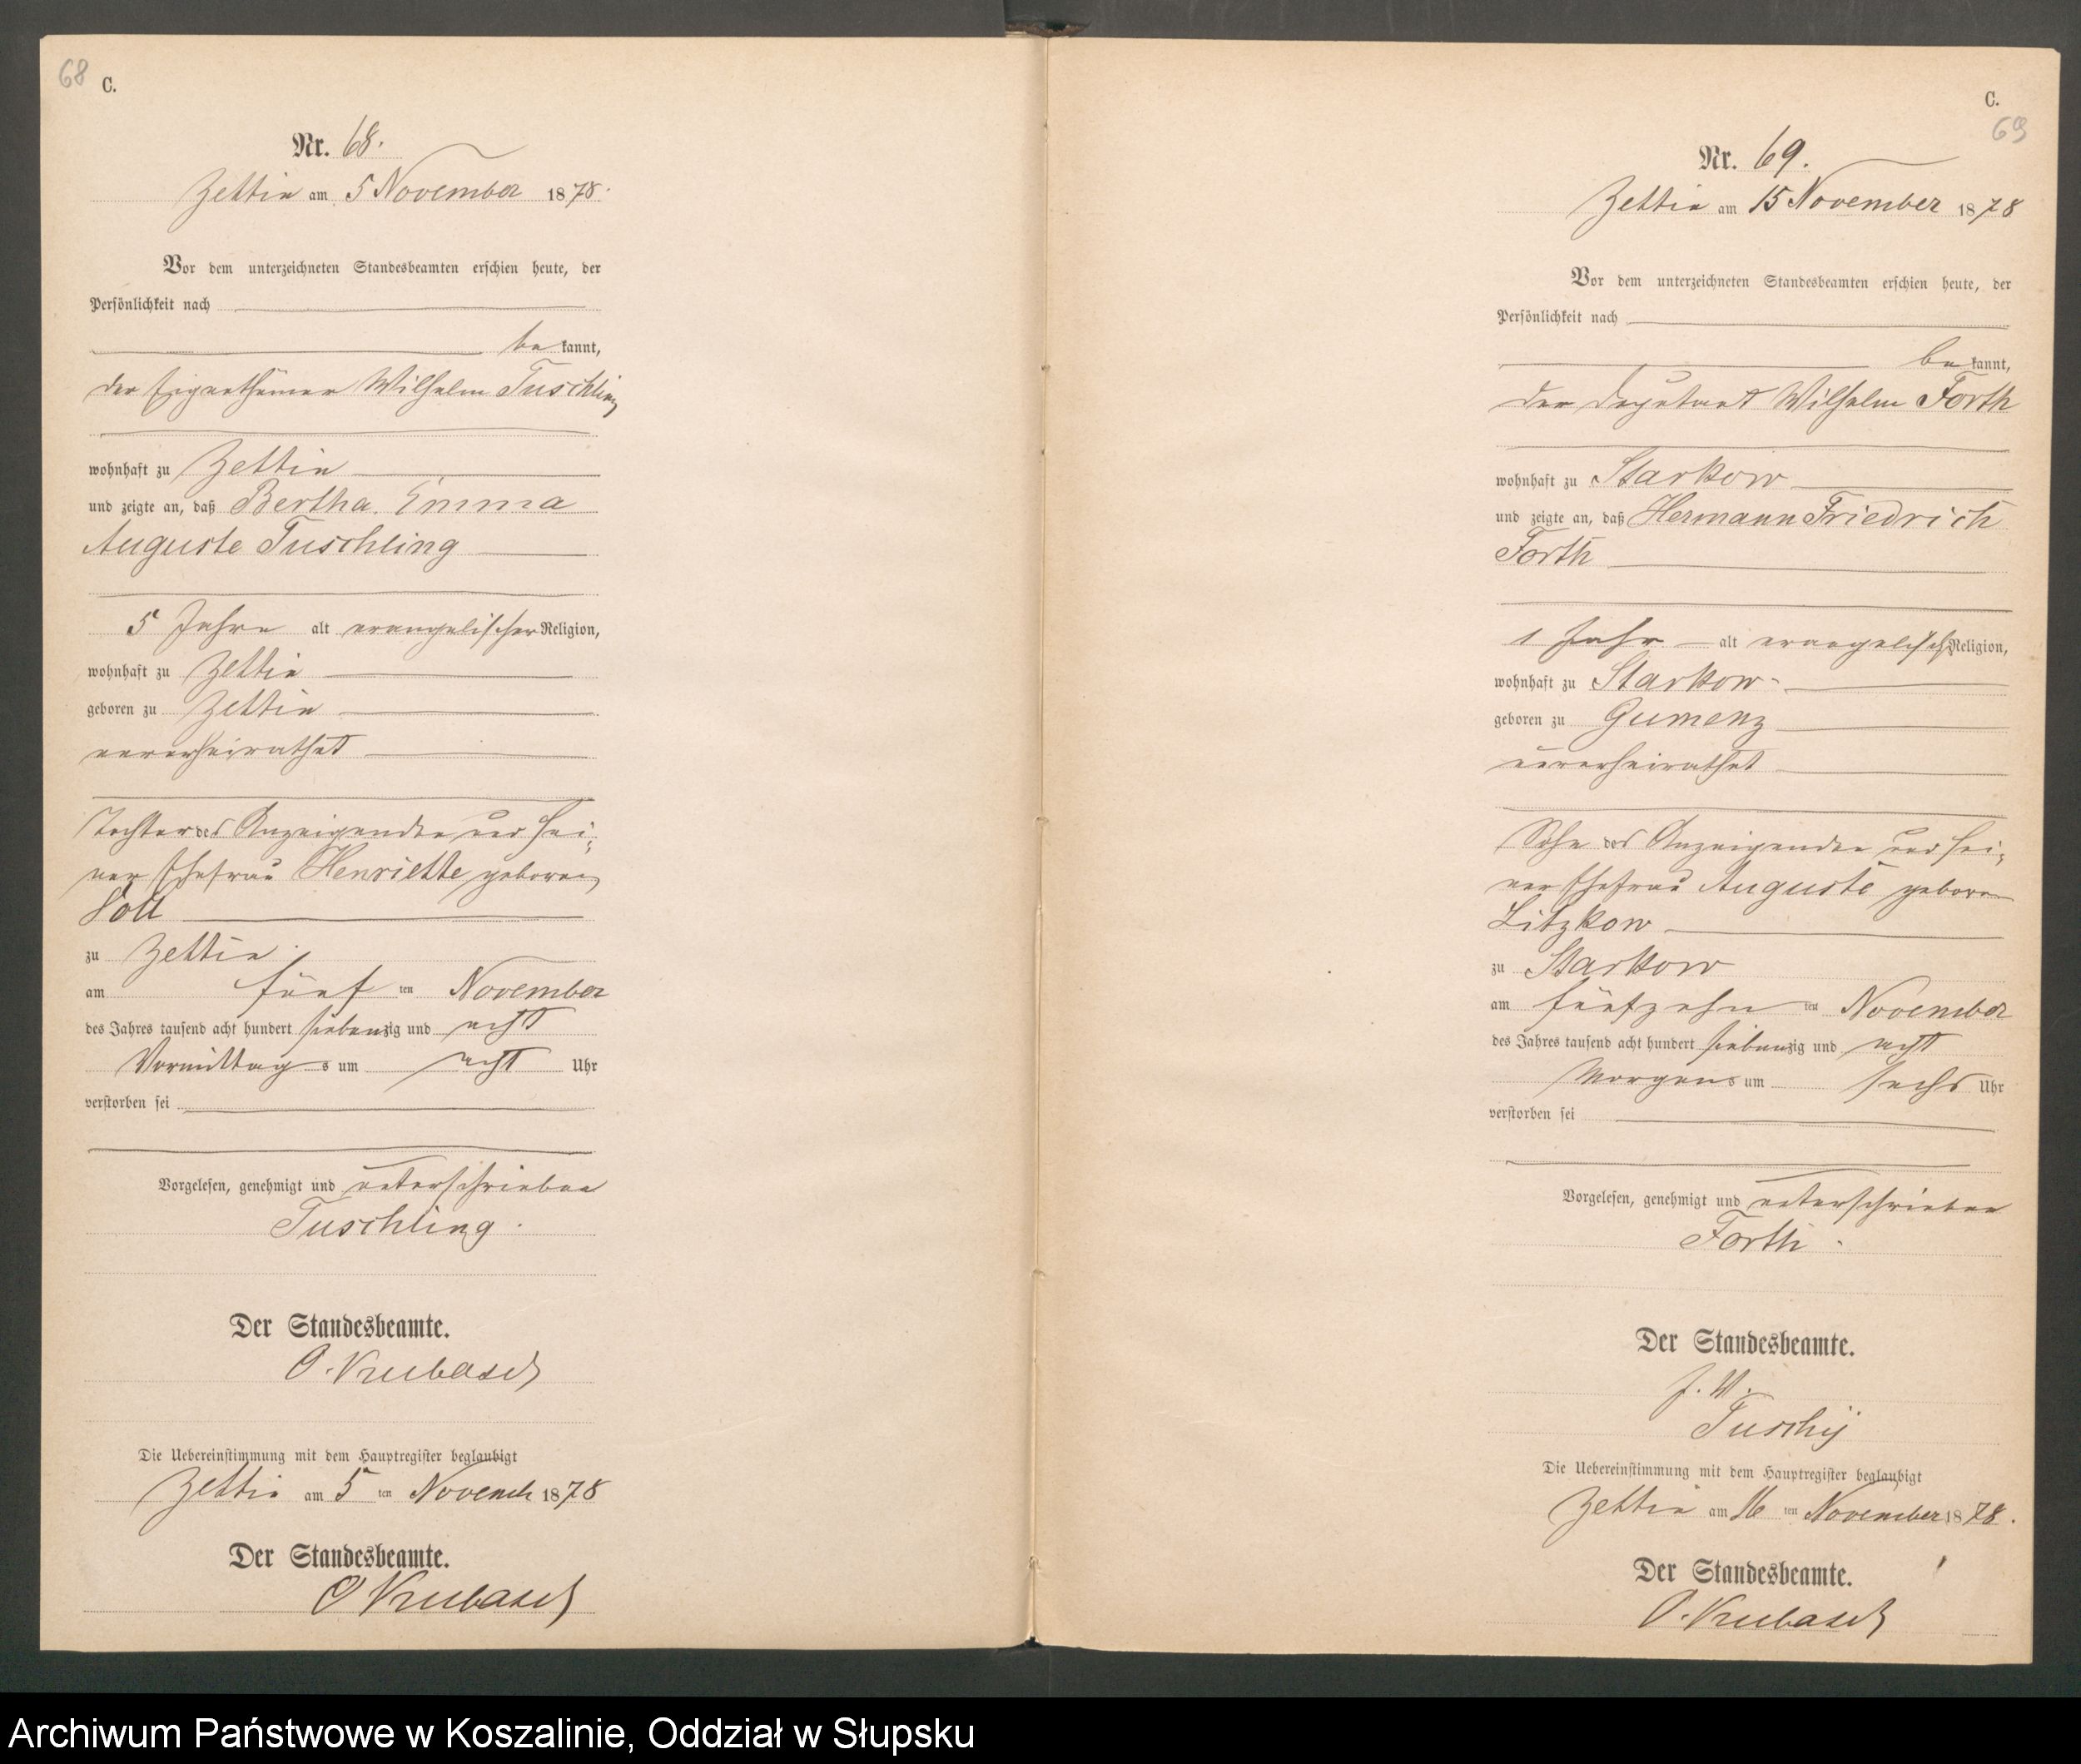 68 C.
Nr. 68.
Zettin am 5 November 1878.
Vor dem unterzeichneten Standesbeamten erschien heute, der
Persönlichkeit nach
bekannt,
der Eigenthümer Wilhelm Tuschling
wohnhaft zu Zettin
und zeigte an, daß Bertha Emma
Auguste Tuschling
5 Jahre alt evangelischer Religion,
wohnhaft zu Zettin
geboren zu Zettin
unverheirathet
Tochter des Anzeigenden und sei-
ner Ehefrau Henriette geborenen
zu Zettin
am fünf ten November
des Jahres tausend acht hundert siebenzig und acht
Vormittags um acht Uhr
verstorben sei
Vorgelesen, genehmigt und unterschrieben
Tuschling.
Der Standesbeamte.
O. Krubasch
Die Uebereinstimmung mit dem Hauptregister beglaubigt
Zettin am 5 ten Novemb 1878
Der Standesbeamte.
O Krubasch
C.
69
Nr. 69.
Zettin am 15 November 1878
Vor dem unterzeichneten Standesbeamten erschien heute, der
Persönlichkeit nach
bekannt,
der Deputant Wilhelm Forth
wohnhaft zu Starkow
und zeigte an, daß Hermann Friedrich
Forth
1 Jahr alt evangelisch Religion,
wohnhaft zu Starkow
geboren zu Gumenz
unverheirathet
Sohn des Anzeigenden und sei-
ner Ehefrau Auguste geboren
Litzkow
zu Starkow
am fünfzehn ten November
des Jahres tausend acht hundert siebenzig und acht
Morgens um sechs Uhr
verstorben sei
Vorgelesen, genehmigt und unterschrieben
Forth.
Der Standesbeamte.
J. V.
Die Uebereinstimmung mit dem Hauptregister beglaubigt
Zettin am 16 ten November 1878.
Der Standesbeamte.
O. Krubasch
Archiwum Państwowe w Koszalinie, Oddział w Słupsku